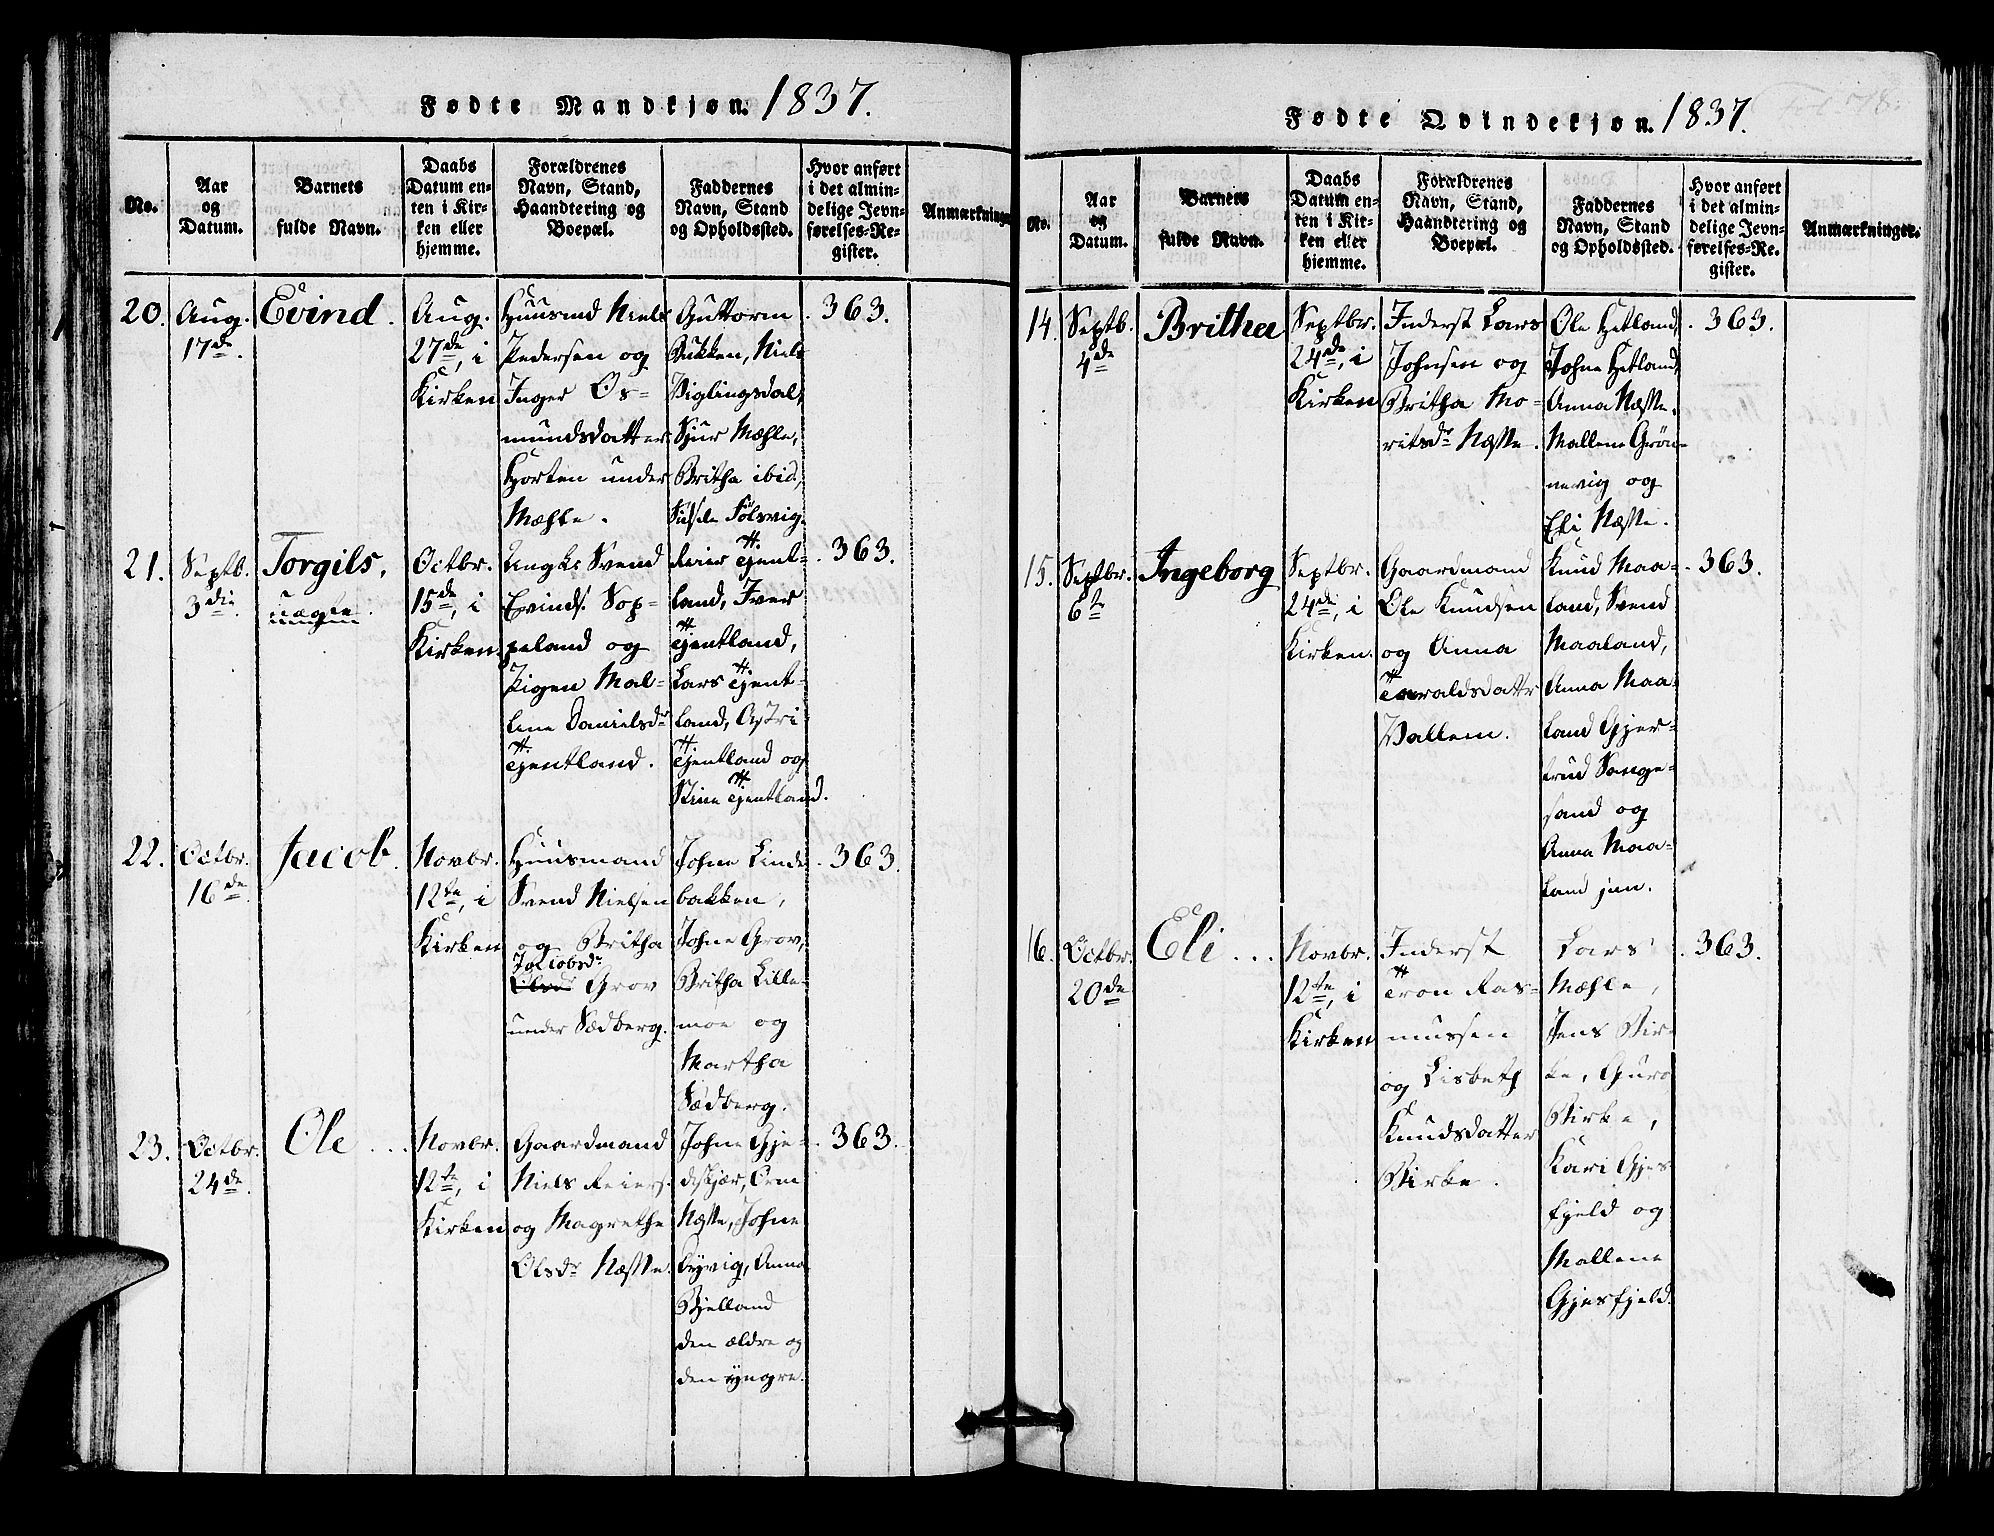 Fødte Mandkjøn. 1837.
No.
Aar
og
Datum.
Barnets
fulde Navn.
Daabs
Datum en-
ten i Kir-
ken eller
hjemme.
Forældrenes
Navn, Stand,
Haandtering og
Boepæl.
Faddernes
Navn, Stand
og Opholdssted.
Hvor anført
i det almin-
delige Jevn-
førelses-Re-
gister.
Anmærkninger
20.
Aug.
17de.
Evind.
Aug.
27de, i
Kirken
Huusmd Niels
Pedersen og
Inger Os-
mundsdatter
Horten under
Mæhle.
Guttorm
Bukken, Niels
Viglingsdal,
Sjur Mæhle,
Britha ibid,
Følsvig.
363.
21.
Septb.
3die.
Torgils,
uægte.
Octbr.
15de, i
Kirken.
Ungkl Svend
Evinds. Sop-
peland og
Pigen Mal-
lene Danielsdr
Tjentland.
Reier Tjent-
land, Iver
Tjentland,
Lars Tjent-
land, Astri
Tjentland og
Stine Tjentland.
363.
22.
Octbr.
16de.
Jacob.
Novbr.
12te, i
Kirken
Huusmand
Svend Nielsen
og Britha
Jacobsdr
Grov
under Sædberg.
Johne Linde-
bakken,
Johne Grov,
Britha Lille-
moe og
Martha
Sædberg.
363.
23.
Octbr.
24de.
Ole
Novbr.
12te, i
Kirken
Gaardmand
Niels Reiers.
og Magrethe
Olsdr Næsse.
Johne Gje-
deskjær, Orm
Næsse, Johne
Byvig, Anna
Bjelland
den ældre og
den yngre.
363.
Fødte Qvindekjøn. 1837.
No.
Aar
og
Datum.
Barnets
fulde Navn.
Daabs
Datum en-
ten i Kir-
ken eller
hjemme.
Forældrenes
Navn, Stand,
Haandtering og
Boepæl.
Faddernes
Navn, Stand
og Opholdssted.
Hvor anført
i det almin-
delige Jevn-
førelses-Re-
gister.
Anmærkninger.
14.
Septb.
4de
Britha
Septbr.
24de, i
Kirken
Inderst Lars
Johnsen og
Britha Mo-
ritsdr Næsse.
Ole Hetland,
Johne Hetland,
Anna Næsse,
Mallene Grøn-
nevig og
Eli Næsse.
363.
15.
Septbr.
6te
Ingeborg
Septbr.
24de, i
Kirken.
Gaardmand
Ole Knudsen
og Anna
Taraldsdattr
Vallem.
Knud Maa-
land, Svend
Maaland,
Anna Maa-
land Gjer-
trud Sange-
sand og
Anna Maa-
land jun.
363.
16.
Octbr.
20de
Eli
Novbr.
12te, i
Kirken
Inderst
Tron Ras-
mussen
og Lisbeth
Knudsdatter
Birke.
Lars
Mæhle,
Jens Bir-
ke, Guro
Birke,
Kari Gjes-
fjeld og
Mallene
Gjesfjeld.
363.